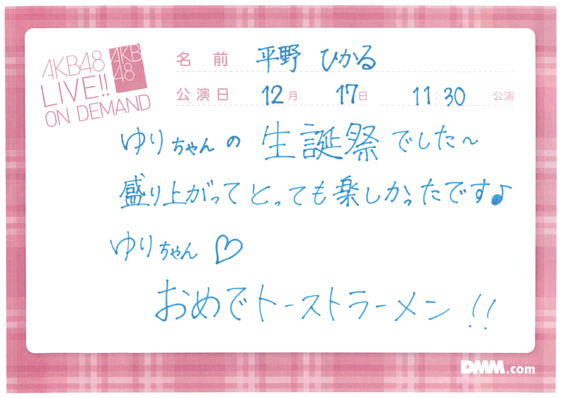 AKB48
LIVE!!
ON DEMAND
AKB
48
名前 平野 ひかる
公演日 12月 17日 11:30 公演
ゆりちゃんの 生誕祭でした〜
盛り上がってとっても楽しかったです♪
ゆりちゃん♡
おめでトーストラーメン!!
DMM.com